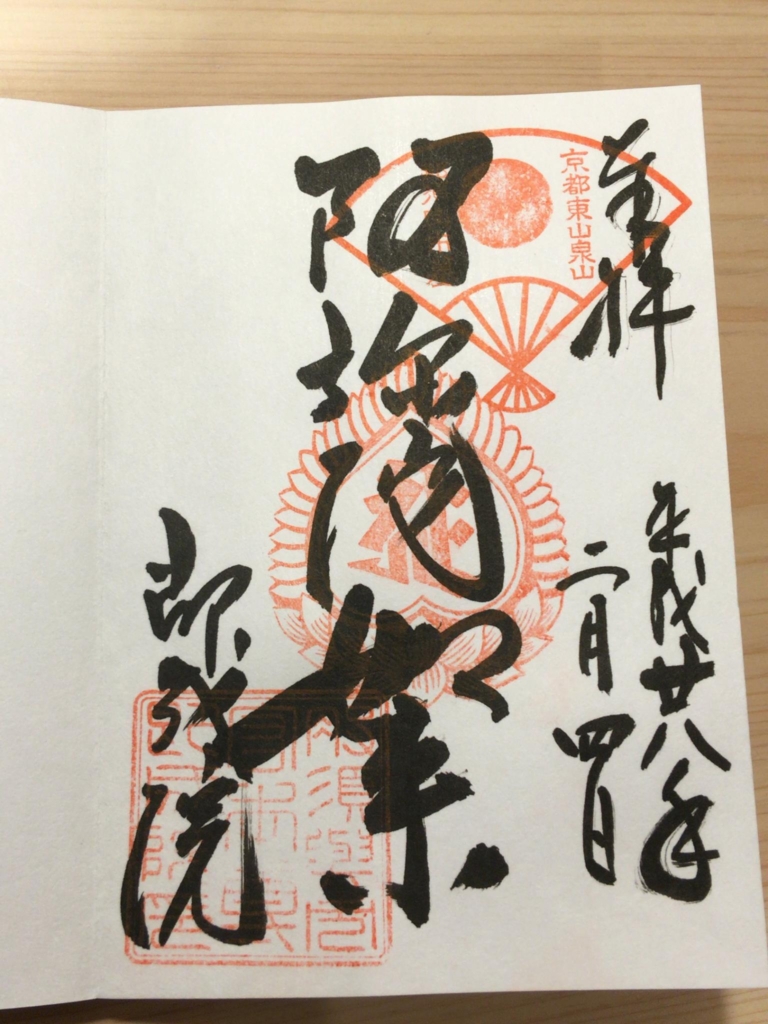 奉拝
平成廿八年
二月四日
京都東山泉山
阿弥陀如来
即成院